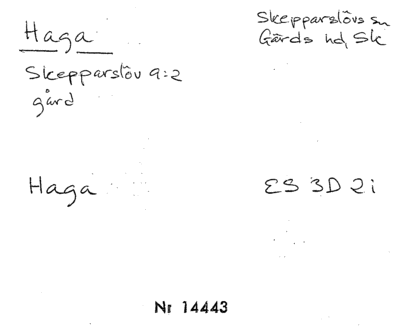 Haga
Skepparslövs sn
Gärds hd, Sk
Skepparslöv 9:2
gård
Haga
ES 3D 2i
Nr 14443